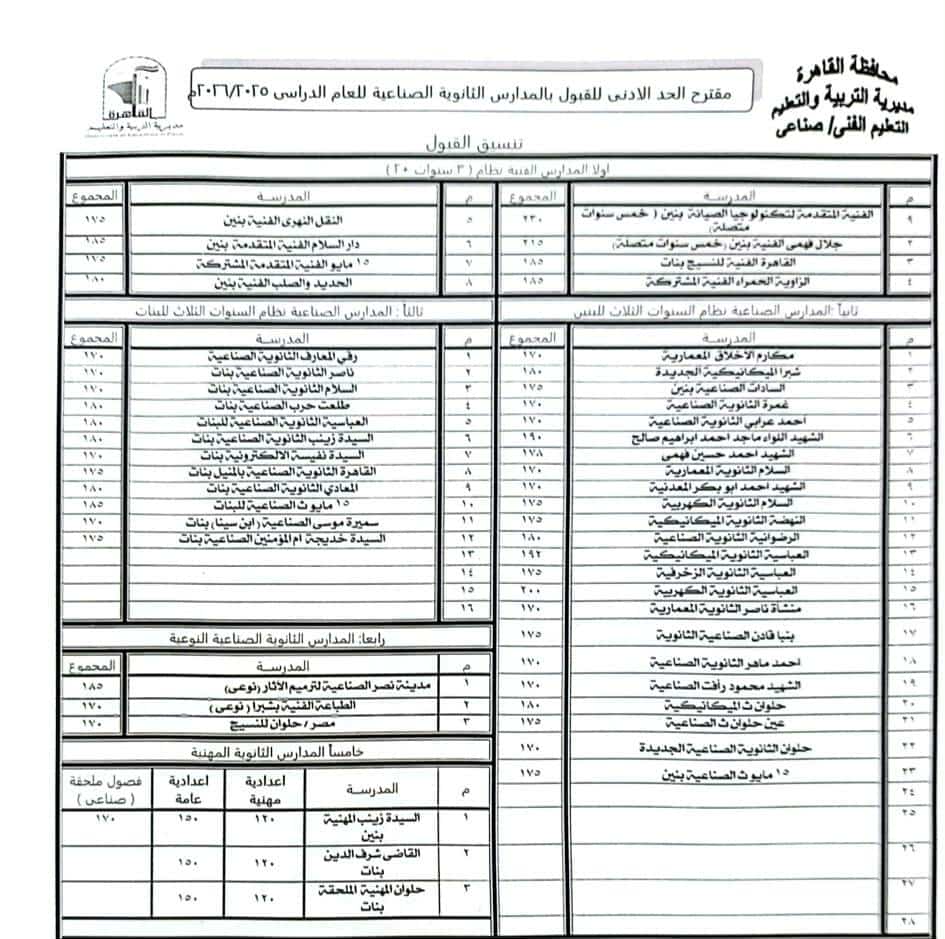 محافظة القاهرة
مديرية التربية والتعليم
التعليم الفنى / صناعى
مقترح الحد الادنى للقبول بالمدارس الثانوية الصناعية للعام الدراسى ٢٠٢٦/٢٠٢٥م
القاهرة
مديرية التربية والتعليم
تنسيق القبول
اولا المدارس الفنية نظام ( ٣ سنوات ٢٠ )
م المدرســة المجموع
٩ الفنية المتقدمة لتكنولوجيا الصيانة بنين ( خمس سنوات متصلة) ٢٣٠
٢ جلال فهمى الفنية بنين (خمس سنوات متصلة) ٢١٥
٣ القاهرة الفنية للنسيج بنات ١٨٥
٤ الزاوية الحمراء الفنية المشتركة ١٨٥
م المدرســة المجموع
٥ النقل النهرى الفنية بنين ١٧٥
٦ دار السلام الفنية المتقدمة بنين ١٨٥
٧ ١٥ مايو الفنية المتقدمة المشتركة ١٧٥
٨ الحديد والصلب الفنية بنين ١٨٠
ثانياً :المدارس الصناعية نظام السنوات الثلاث للبنين
م المدرســة المجموع
١ مكارم الأخلاق المعمارية ١٧٠
٢ شبرا الميكانيكية الجديدة ١٨٠
٣ السادات الصناعية بنين ١٧٥
٤ غمرة الثانوية الصناعية ١٧٠
٥ احمد عرابي الثانوية الصناعية ١٧٠
٦ الشهيد اللواء ماجد احمد ابراهيم صالح ١٩٠
٧ الشهيد احمد حسين فهمى ١٧٨
٨ السلام الثانوية المعمارية ١٧٠
٩ الشهيد احمد ابو بكر المعدنية ١٧٠
١٠ السلام الثانوية الكهربية ١٧٥
١١ النهضة الثانوية الميكانيكية ١٧٥
١٢ الرضوانية الثانوية الصناعية ١٨٠
١٣ العباسية الثانوية الميكانيكية ١٩٢
١٤ العباسية الثانوية الزخرفية ١٧٥
١٥ العباسية الثانوية الكهربية ٢٠٠
١٦ منشاة ناصر الثانوية المعمارية ١٧٠
١٧ بنبا قادن الصناعية الثانوية ١٧٥
١٨ احمد ماهر الثانوية الصناعية ١٧٠
١٩ الشهيد محمود رأفت الصناعية ١٧٠
٢٠ حلوان ث الميكانيكية ١٨٠
٢١ عين حلوان ث الصناعية ١٧٥
٢٢ حلوان الثانوية الصناعية الجديدة ١٧٠
٢٣ ١٥ مايو ث الصناعية بنين ١٧٥
٢٤
٢٥
٢٦
٢٧
٢٨
ثالثاً : المدارس الصناعية نظام السنوات الثلاث للبنات
م المدرســة المجموع
١ رقي المعارف الثانوية الصناعية ١٧٠
٢ ناصر الثانوية الصناعية بنات ١٧٠
٣ السلام الثانوية الصناعية بنات ١٧٠
٤ طلعت حرب الصناعية بنات ١٨٠
٥ العباسية الثانوية الصناعية للبنات ١٨٠
٦ السيدة زينب الثانوية الصناعية بنات ١٨٠
٧ السيدة نفيسة الالكترونية بنات ١٧٠
٨ القاهرة الثانوية الصناعية بالمنيل بنات ١٧٥
٩ المعادي الثانوية الصناعية بنات ١٨٠
١٠ ١٥ مايو ث الصناعية للبنات ١٨٥
١١ سميرة موسى الصناعية (ابن سينا) بنات ١٧٠
١٢ السيدة خديجة ام المؤمنين الصناعية بنات ١٧٥
١٣
١٤
١٥
١٦
رابعا: المدارس الثانوية الصناعية النوعية
م المدرســة المجموع
١ مدينة نصر الصناعية لترميم الاثار (نوعى) ١٨٥
٢ الطباعة الفنية بشبرا (نوعى) ١٧٠
٣ مصر / حلوان للنسيج ١٧٠
خامساً المدارس الثانوية المهنية
م المدرســة اعدادية مهنية اعدادية عامة فصول ملحقة ( صناعى )
١ السيدة زينب المهنية بنين ١٢٠ ١٥٠ ١٧٠
٢ القاضى شرف الدين بنات ١٢٠ ١٥٠
٣ حلوان المهنية الملحقة بنات ١٢٠ ١٥٠